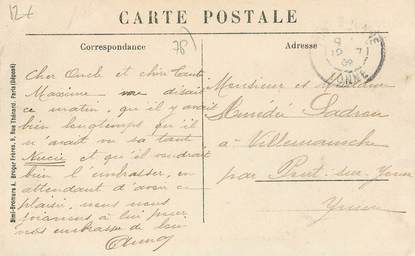 12+
CARTE POSTALE
Correspondance
78
Adresse
YONNE
Cher Oncle et chère Tante
Maxime me disait
ce matin, qu'il y avait
bien longtemps qu'il
n'avait vu sa tante
Lucie et qu'il voudrait
bien l'embrasser, en
attendant d'avoir ce
plaisir, nous nous
joignons à lui pour
vous embrasser de loin
Monsieur et Madame
Amédée Ladrau
à Villemanoche
par Pont-sur-Yonne
Yonne
Simi-Bromure A. Breger Frères, 9, Rue Thénard, Paris (Déposé)